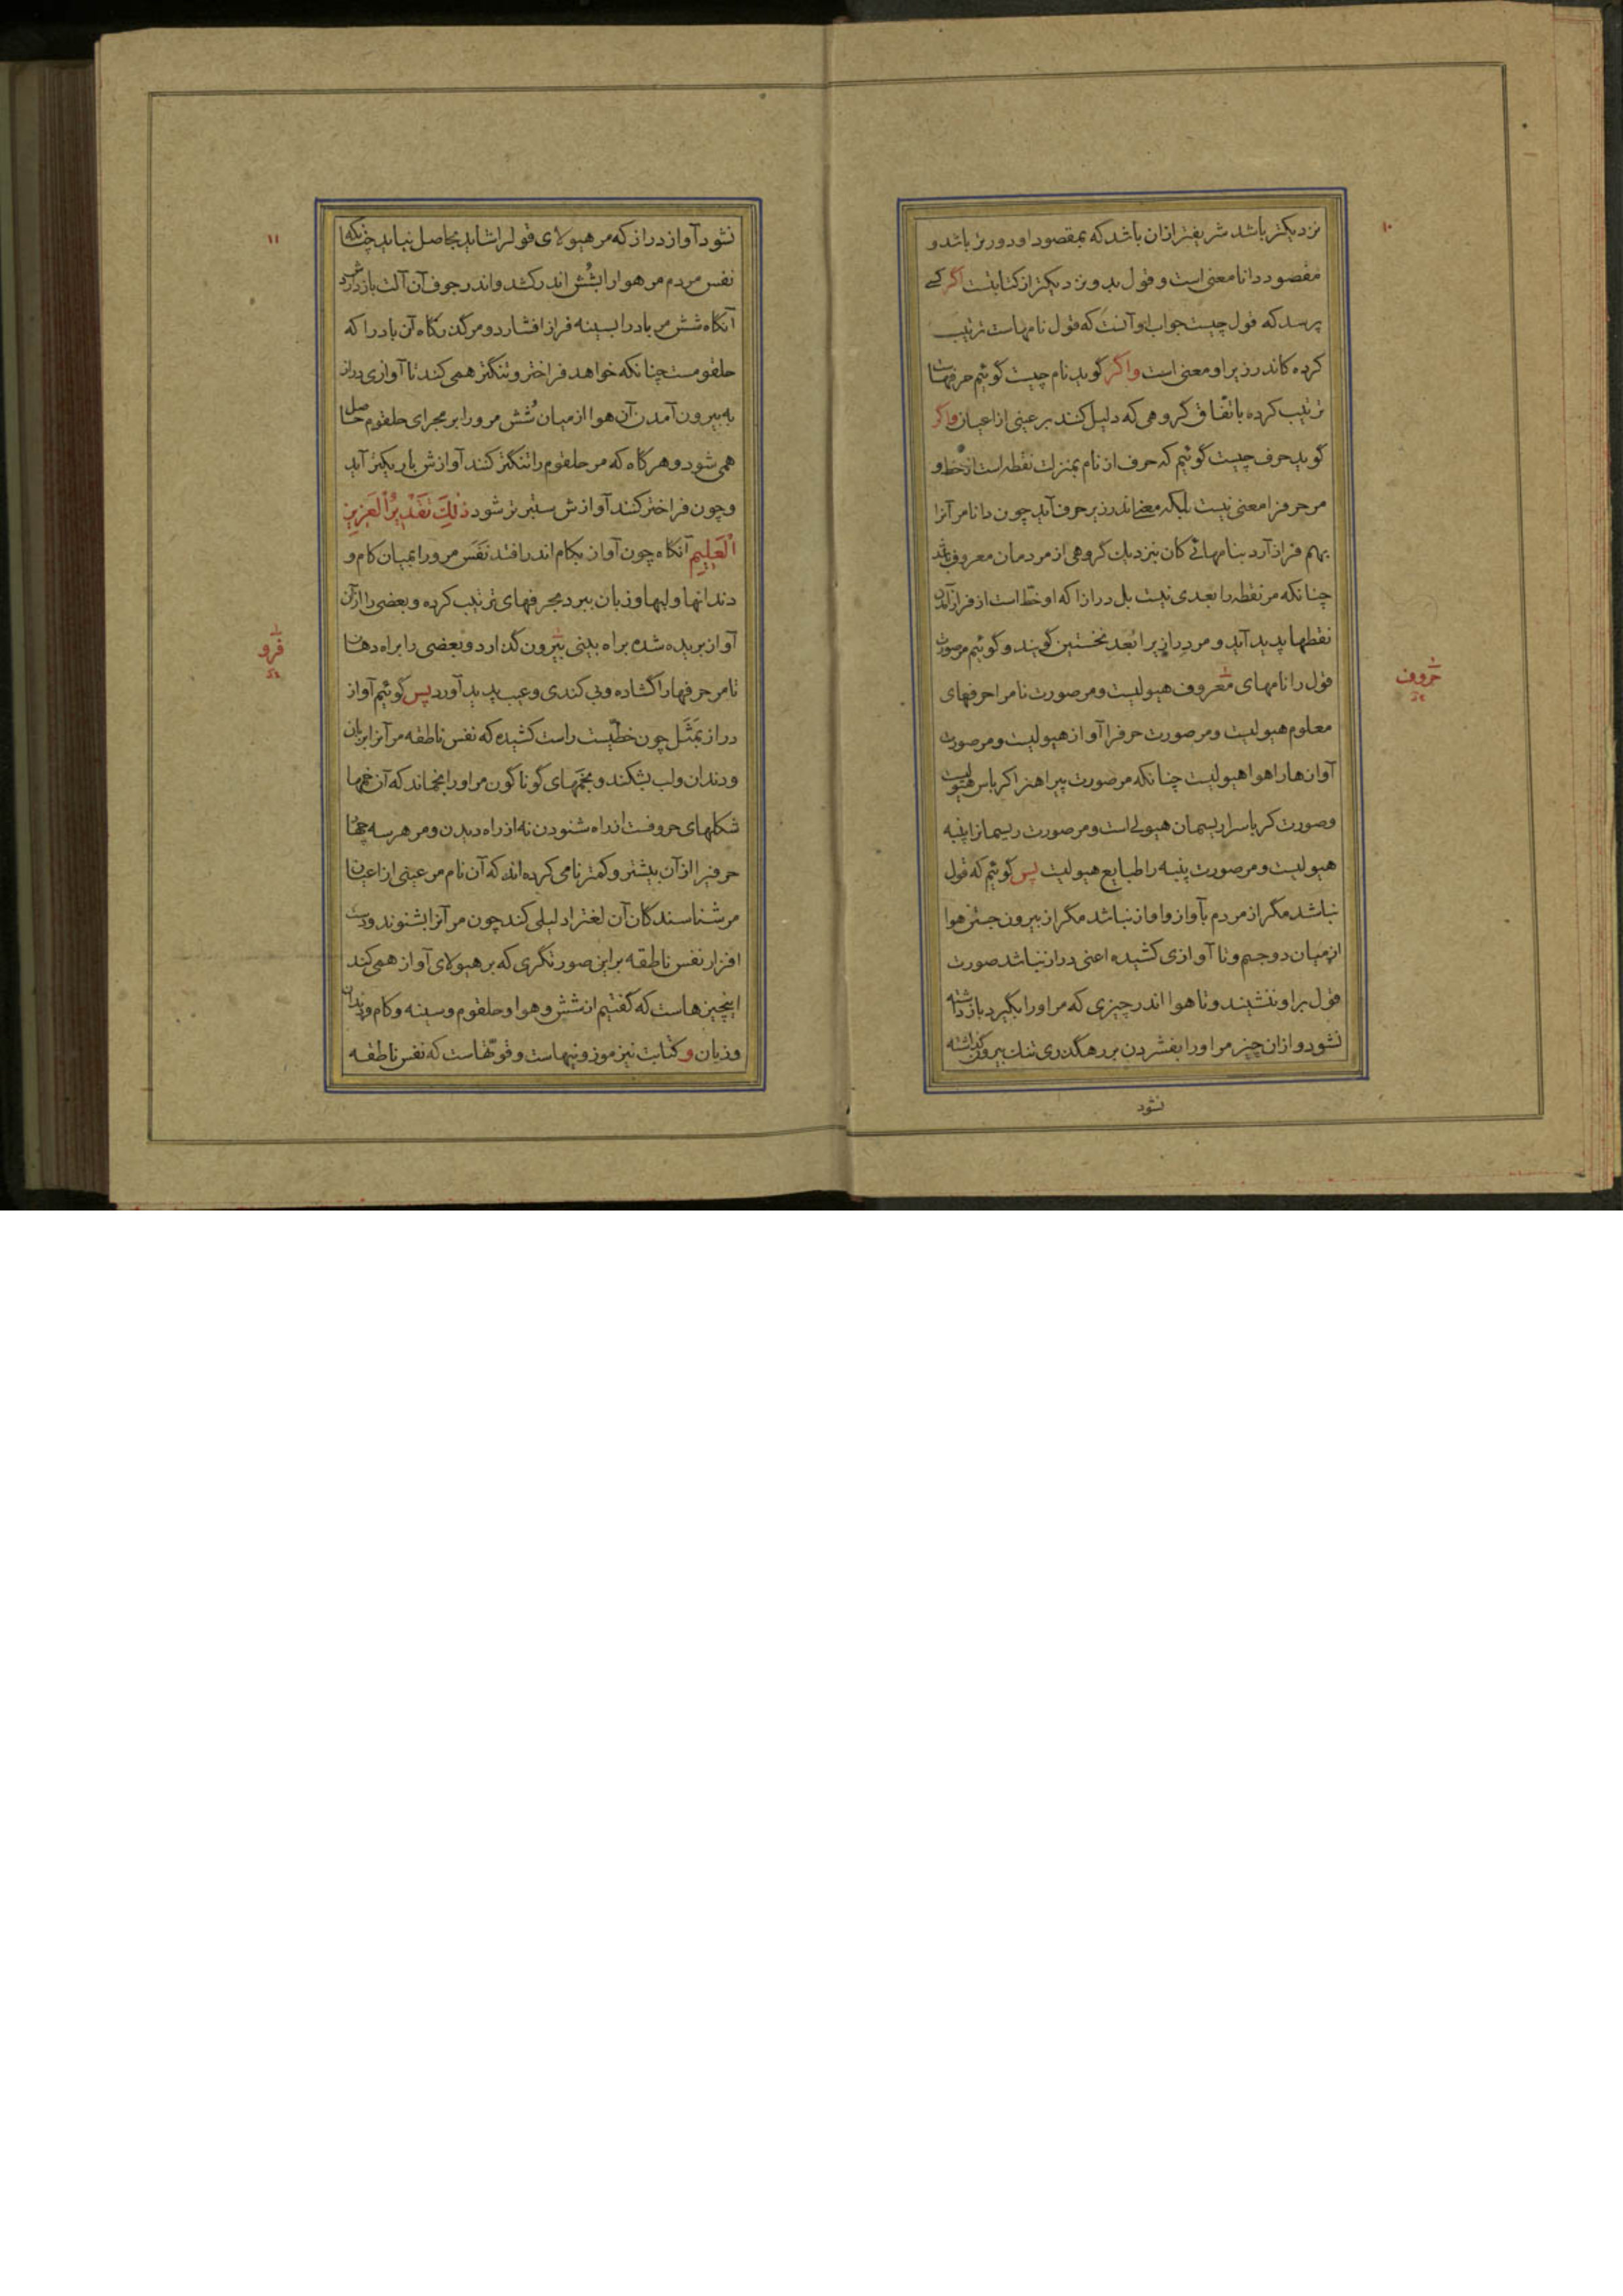 ۱۰
نزدیکتر باشد شریفتر ازان باشد که بمقصود او دورتر باشد و
مقصود دانا معنی است و قول بدو نزدیکتر از کتابتست اگر کسی
پرسد که قول چیست جواب او آنست که قول نامهاست ترتیب
کرده کاندر زیر او معنی است واگر گوید نام چیست گوئیم حرفهاست
ترتیب کرده باتّفاق گروهی که دلیل کند بر عینی از اعیان واگر
گوید حرف چیست گوئیم که حرف از نام بمنزلت نقطه است از خط و
مر حرفرا معنی نیست بلکه معنی اندر زیر حرف آید چون دانا مر آنرا
بهم فراز آرد بنامهائی کان بنزدیک گروهی از مردمان معروف باشد
چنانکه مر نقطه را بعدی نیست بل درازا که او خطّ است از فراز آمدن
نقطها پدید آید و مر درازیرا بُعدِ نخستین گویند و گوئیم مر صورت
قول را نامهای معروف هیولیست و مر صورت نامرا حرفهای
حروف
معلوم هیولیست و مر صورت حرفرا آواز هیولیست و مر صورت
آوازها را هوا هیولیست چنانکه مر صورت پیراهنرا کرباس هیولیست
و صورت کرباسرا ریسمان هیولی است و مر صورت ریسمانرا پنبه
هیولیست و مر صورت پنبه را طبایع هیولیست پس گوئیم که قول
نباشد مگر از مردم بآواز و اواز نباشد مگر از بیرون جستن هوا
از میان دو جسم و تا آوازی کشیده اعنی دراز نباشد صورت
قول براو ننشیند و تا هوا اندر چیزی که مر اورا بگیرد بازداشته
نشود و ازان چیز مر اورا بفشردن بر رهگذری تنک بیرون گذاشته
نشود
۱۱
نشود آواز دراز که مر هیولای قولراشاید بحاصل نیاید چنانکه
نفس مردم مر هوارا بشُش اندر کشد و اندر جوف آن آلت بازداردش
آنگاه شش مر بادرا بسینه فراز افشارد و مر گذرگاه آن بادرا که
حلقومست چنانکه خواهد فراختر و تنگتر همی کند تا آوازی دراز
به بیرون آمدن آن هوا از میان شُش مرورا بر مجرای حلقوم حاصل
همی شود و هرگاه که مر حلقوم را تنگتر کند آوازش باریکتر آید
و چون فراختر کند آوازش ستبر تر شود ذٰلِكَ تَقْدِیرُ الْعَزِیزِ
الْعَلِیمِ آنگاه چون آواز بکام اندر افتد نفَس مرورا بمیان کام و
دندانها و لبها و زبان ببرد بحرفهای ترتیب کرده و بعضی را از آن
آواز بریده شده براه بینی بیرون گذارد و بعضی را براه دهان
فرو
تا مر حرفهارا گشاده و بی کندی و عیب پدید آورد پس گوئیم آواز
دراز بمَثَل چون خطّیست راست کشیده که نفس ناطقه مر آنرا بزبان
و دندان و لب بشکند و بخَمهای گوناگون مر اورا بخماند که آن خمها
شکلهای حروفست از راه شنودن نه از راه دیدن و مر هر سه چهار
حرفیرا از آن بیشتر و کمتر نامی کرده اند که آن نام مر عینی از اعیان
مر شناسندگان آن لغترا دلیلی کند چون مر آنرا بشنوند و دست
افزار نفس ناطقه براین صورتگری که بر هیولای آواز همی کند
اینچیزهاست که گفتیم از شش و هوا و حلقوم و سینه و کام و دندان
و زبان و کتابت نیز موزونیهاست و قوّتهاست که نفس ناطقه